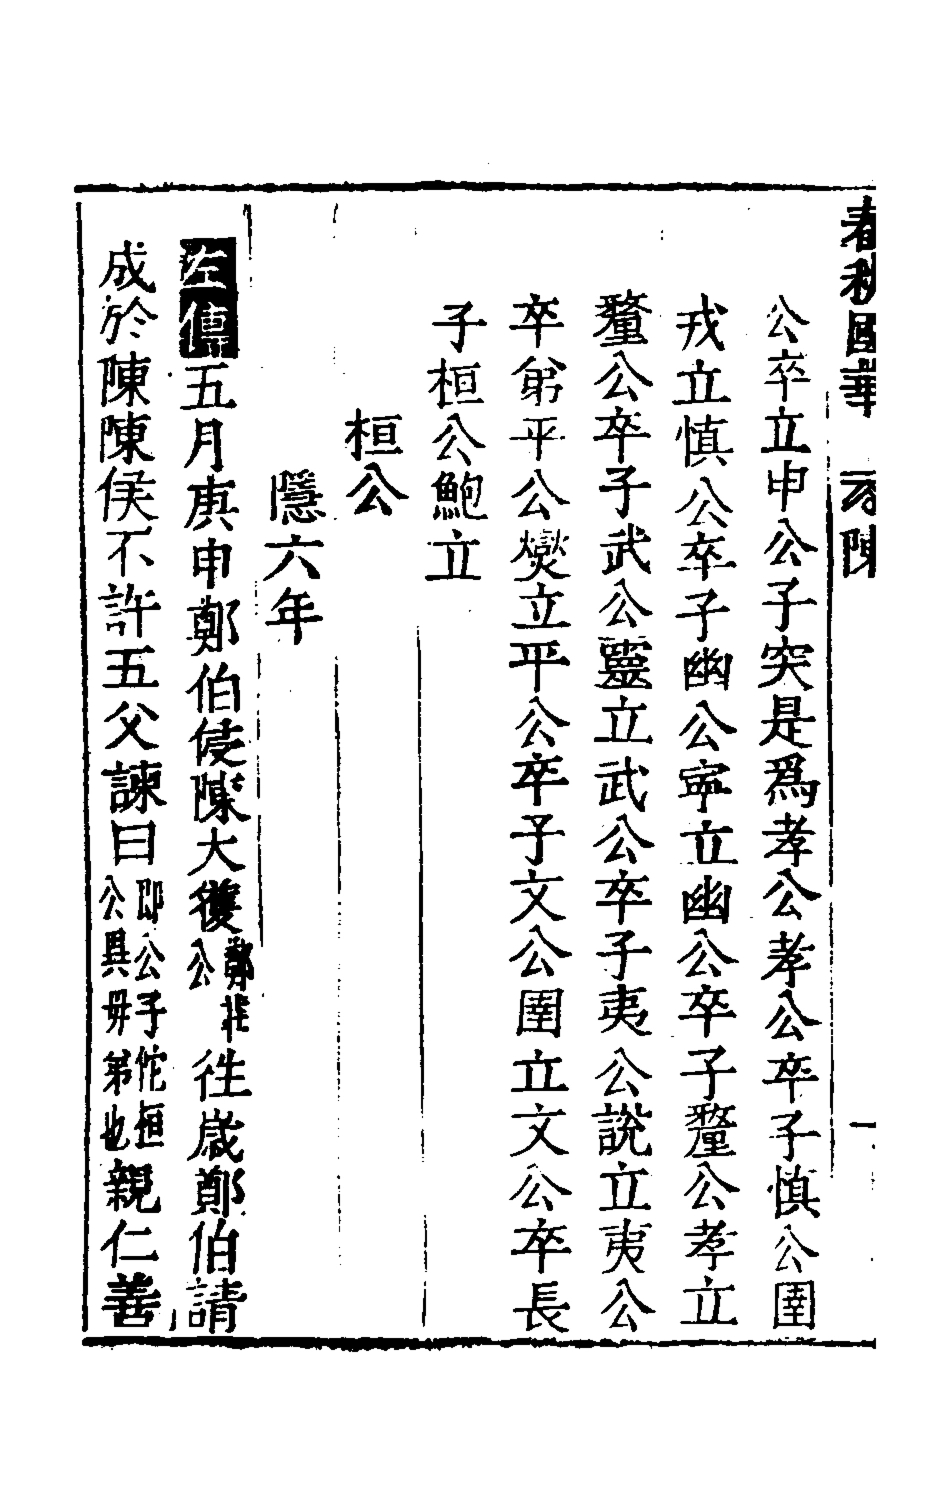 春秋國華 陳 一
公卒立申公子突是爲孝公孝公卒子慎公圉
戎立慎公卒子幽公寧立幽公卒子釐公孝立
釐公卒子武公靈立武公卒子夷公說立夷公
卒弟平公燮立平公卒子文公圉立文公卒長
子桓公鮑立
桓公
隱六年
左傳五月庚申鄭伯侵陳大獲鄭莊公徃歳鄭伯請
成於陳陳侯不許五父諫曰即公子佗桓公具毋弟也親仁善